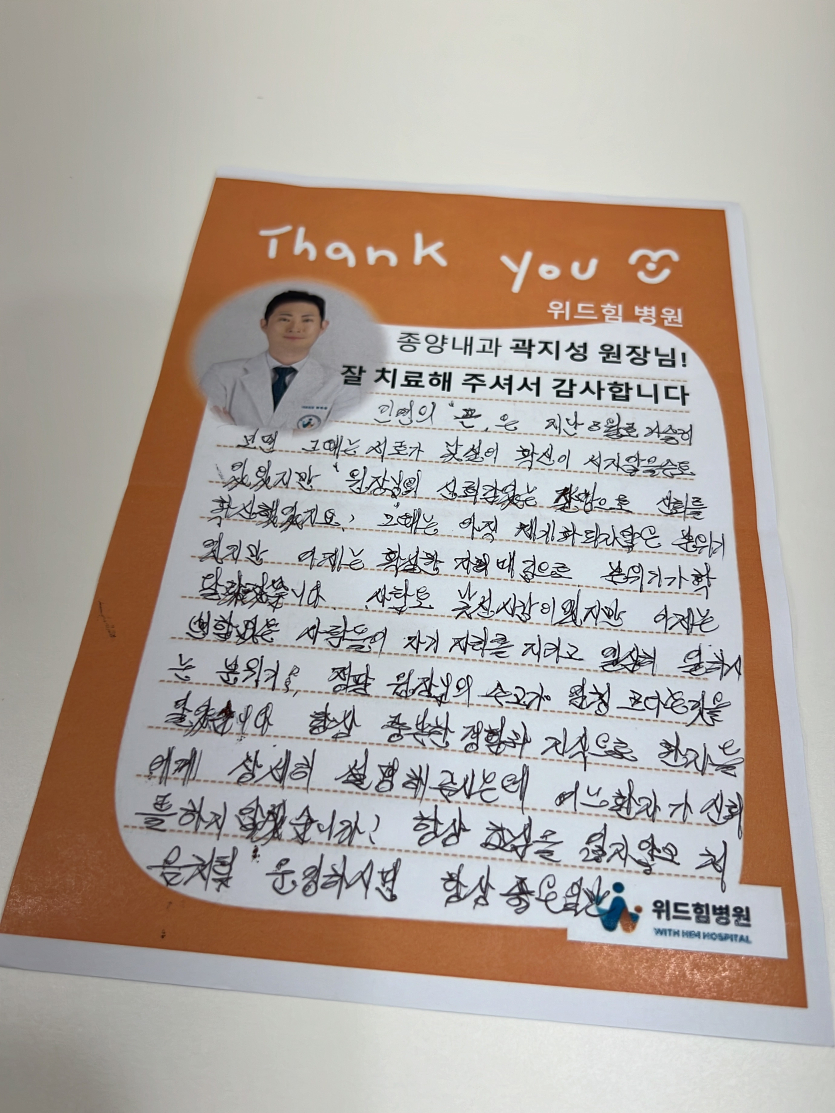 Thank you
위드힘 병원
종양내과 곽지성 원장님!
잘 치료해 주셔서 감사합니다
인연의 "끈"은 지난 8월로 거슬러
보면 그때는 서로가 낯설어 확신이 서지않을정도
였지만 원장님의 신뢰감있는 신뢰를
그때는 아직 체계화되지않은 분위기
였지만 이제는 확실한 자리매김으로 분위기가 확
달라졌습니다. 사람도 낯선사람이었지만 이제는
사람들이 자기 자리를 지키고 일상의
는 분위기, 정말 원장님의 수고가
항상 충분한 경험과 지식으로 환자들
에게 상세히 설명해 주시는데 어느환자가 신뢰
를하지 않겠습니까? 항상 초심을 잃지말고 처
음처럼 운영하시면 항상 좋은일만
위드힘병원
WITH HIM HOSPITAL